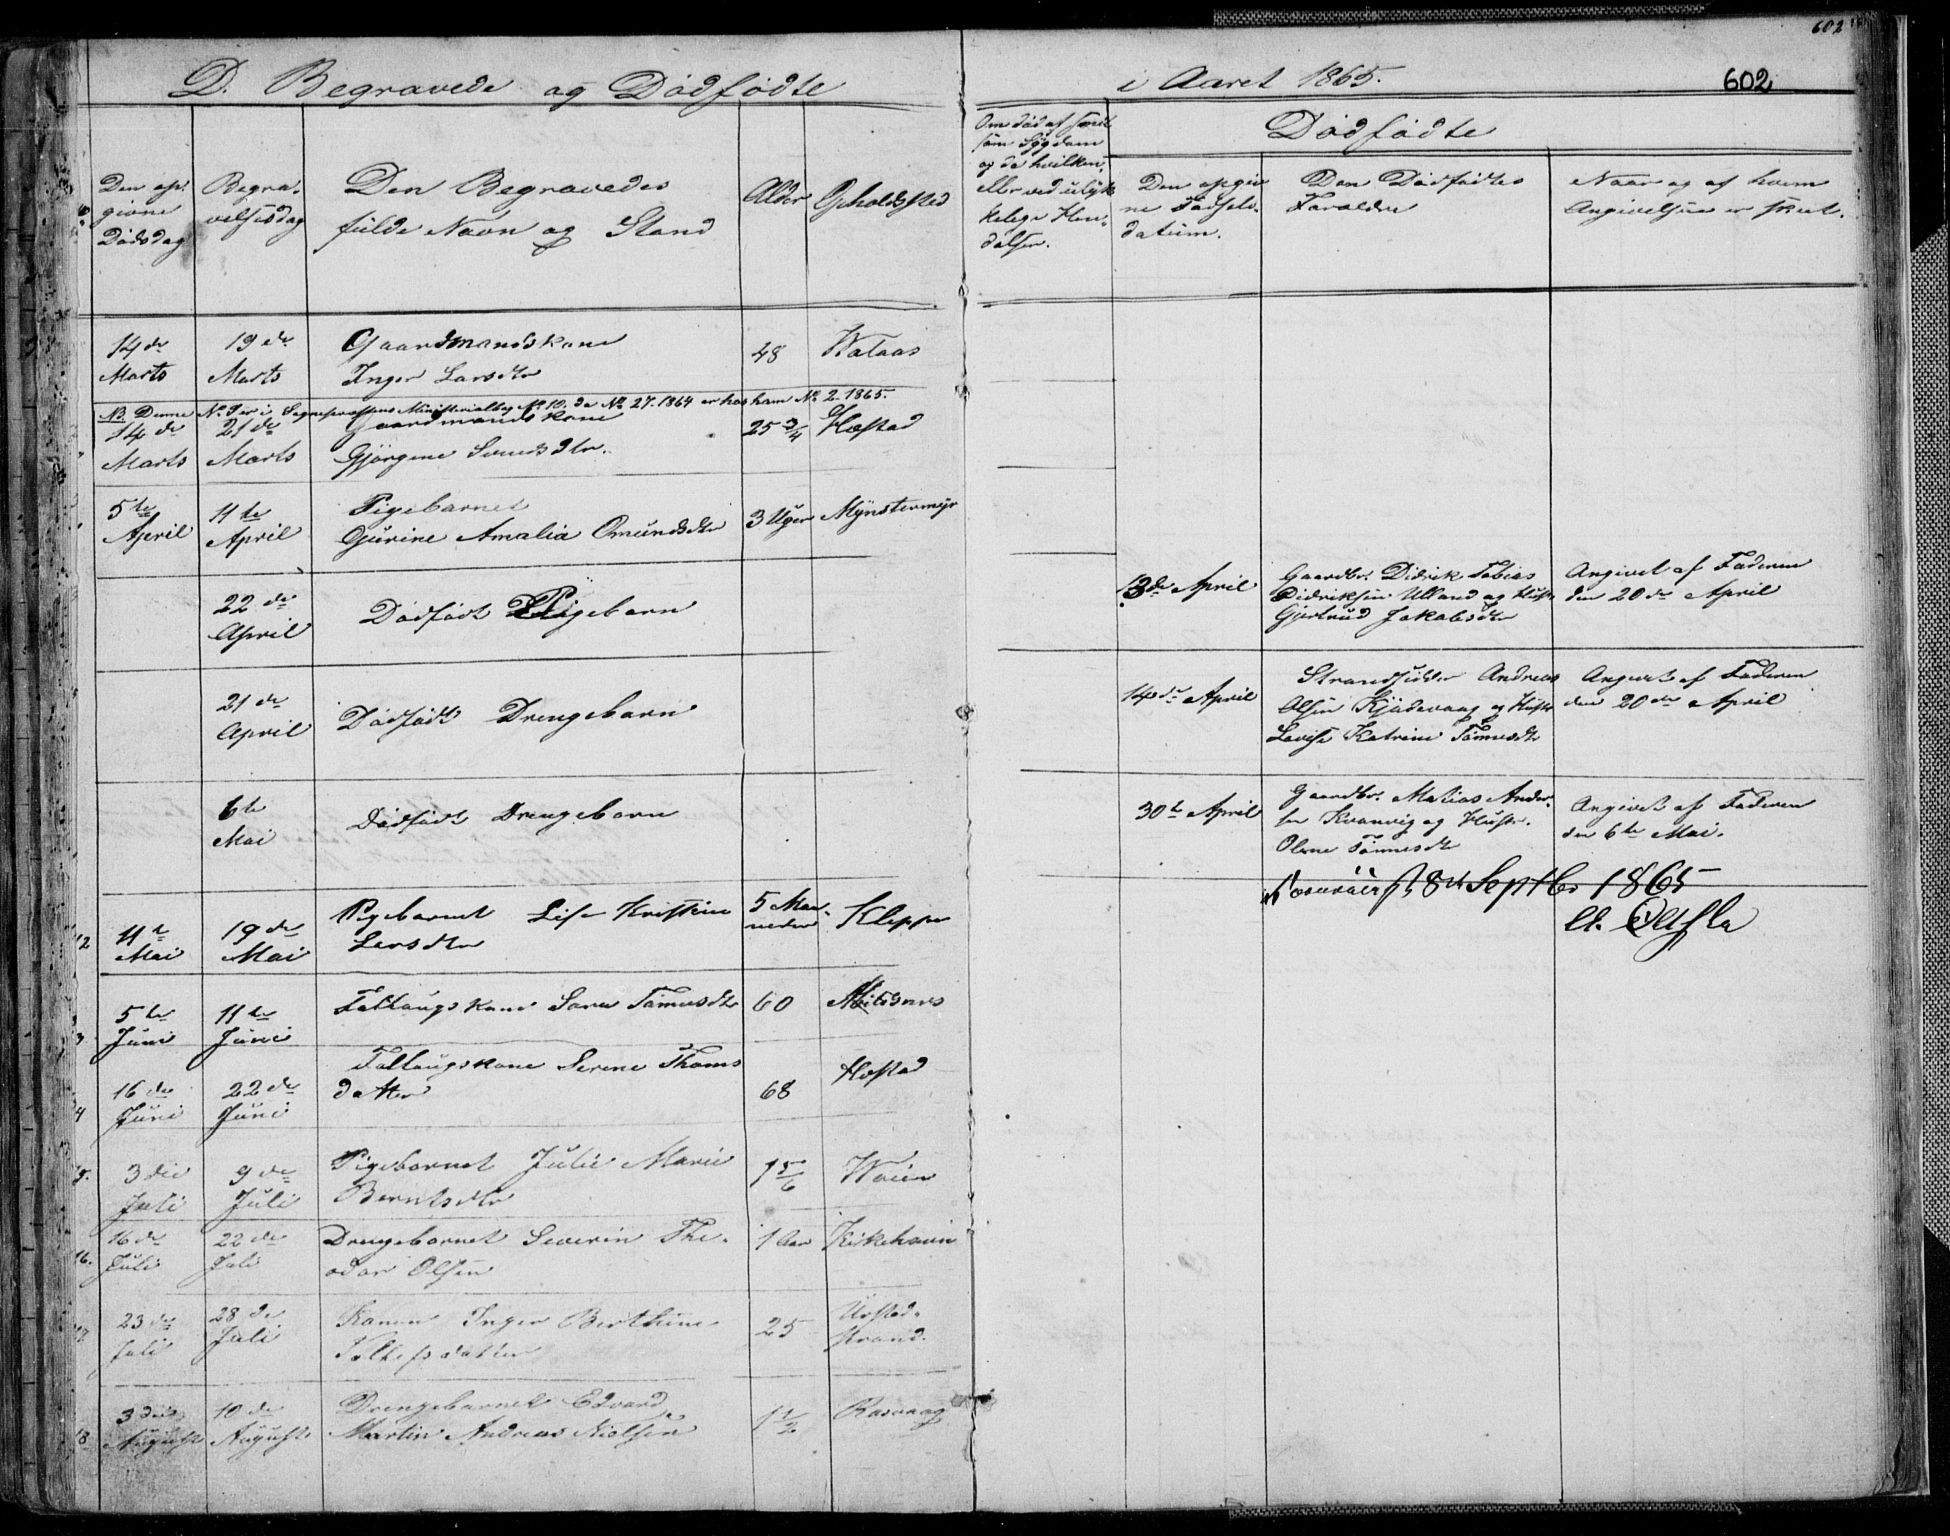 602
D. Begravede og Dødfødte
i Aaret 1865.
602
Den op-
givne
Dødsdag
Begra-
velsesdag
Den Begravedes
fulde Navn og Stand
Alder
Opholdssted
Om død af smit
som Sygdom
og da hvilken,
eller ved ulyk
kelige Hæn-
delser.
Dødfødte
Den opgiv
ne Fødsels-
datum.
Den Dødfødtes
Forældre
Naar og af hvem
Angivelsen er skeet.
14de
Marts
19de
Marts
Gaardmandskone
Inger Larsdtr
48
Wataas
NB Denne No 9 er i Sogneprestens Ministerialbog No 10. da No 27. 1864 er hos ham No 2. 1865.
14de
Marts
21de
Marts
Gaardmandskone
Gjörgine Svendsdtr.
25 3/4
Hæstad
5te
April
11te
April
Pigebarnet
Gurine Amalia Omundsdtr
3 Uger
Mynstermyr
22de
April
Dödfödt Pigebarn
13de April
Gaardbr. Didrik Tobias
Didriksen Ulland og Hustr
Gjertrud Jakobsdtr
Angivet af Faderen
den 20de April
21de
April
Dödfödt Drengebarn
14de April
Strandsidder Andreas
Olsen Kjødevaag og Hustr
Lovise Katrine Tönnesdtr
Angivet af Faderen
den 20de April
6te
Mai
Dödfödt Drengebarn
30te April
Gaardbr. Matias Ander-
sen Kvanvig og Hustr.
Olene Tönnesdtr
Angivet af Faderen
den 6te Mai.
8de Septbr 1865
12
11te
Mai
19de
Mai
Pigebarnet Lise Kristine
Larsdtr
5 Maa-
neder
Kleppe
3
5te
Juni
11te
Juni
Fattigskone Sara Tönnesdtr
60
4
16de
Juni
22de
Juni
Fattigskone Serine Thoms
datter
68
Hæstad
15.
3die
Juli
9de
Juli
Pigebarnet Julie Marie
Berntsdtr
1 5/6
Woien
16.
16de
Juli
22de
Juli
Drengebarnet Severin The-
odor Olsen
1 Aar
Kirkehavn
17
23de
Juli
28de
Juli
Konen Inger Berthine
Tollefsdatter
25
Urstad-
strand.
18
3die
August
10de
August
Drengebarnet Edvard
Martin Andreas Nielsen
1 1/2
Rasvaag